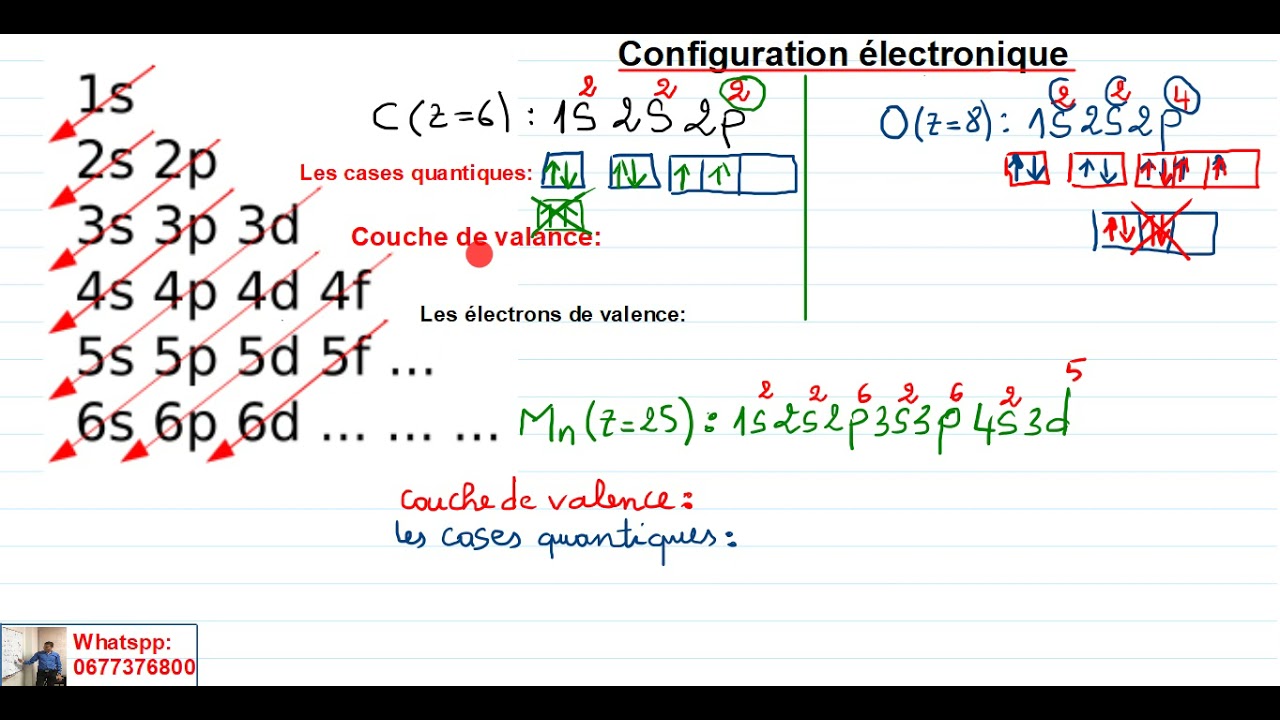 Configuration électronique
1s
2s 2p
3s 3p 3d
4s 4p 4d 4f
5s 5p 5d 5f ...
6s 6p 6d ... ... ...
C (z=6) : 1S² 2S² 2p²
Les cases quantiques:
Couche de valance:
Les électrons de valence:
O(z=8) : 1S² 2S² 2p⁴
Mn (z=25) : 1s² 2s² 2p⁶ 3s² 3p⁶ 4s² 3d⁵
couche de valence :
les cases quantiques :
Whatspp:
0677376800